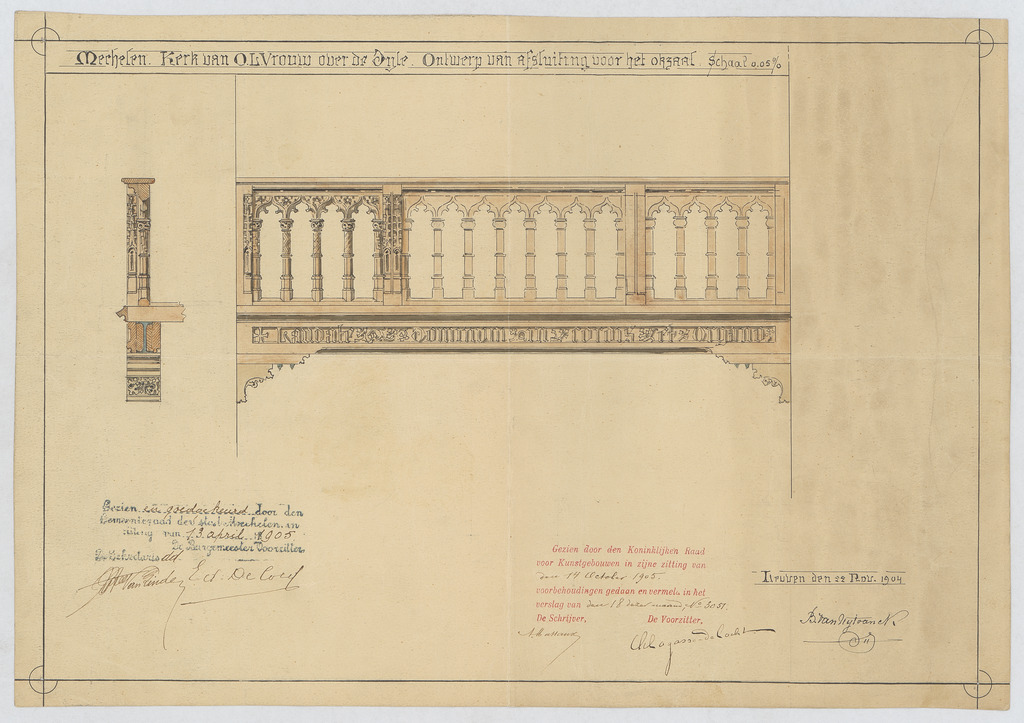 Mechelen. Kerk van O.L.Vrouw over de Dyle. Ontwerp van afsluiting voor het okzaal. Schaal 0.05 %
Laudate Dominum in
Gezien en goedgekeurd door den
Gemeenteraad der stad Mechelen, in
zitting van 13 april 1905
De Burgemeester Voorzitter,
De Secretaris
Ed. De Cocq
Gezien door den Koninklijken Raad
voor Kunstgebouwen in zijne zitting van
den 14 October 1905.
voorbehoudingen gedaan en vermeld in het
verslag van den 18 dezer maand, N° 3051.
De Schrijver, De Voorzitter,
Leuven den 22 Nov. 1904